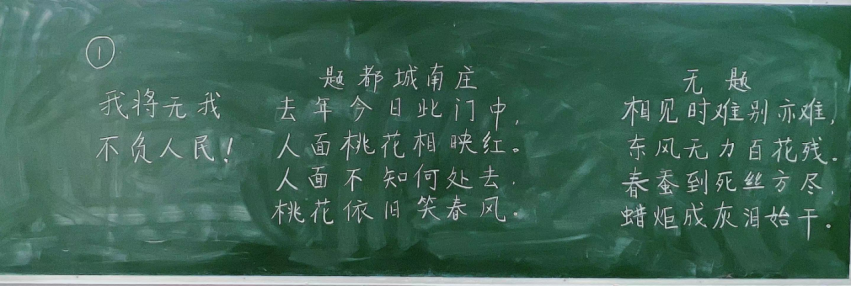 ①
我将无我
不负人民!
题都城南庄
去年今日此门中,
人面桃花相映红。
人面不知何处去,
桃花依旧笑春风。
无题
相见时难别亦难,
东风无力百花残。
春蚕到死丝方尽,
蜡炬成灰泪始干。